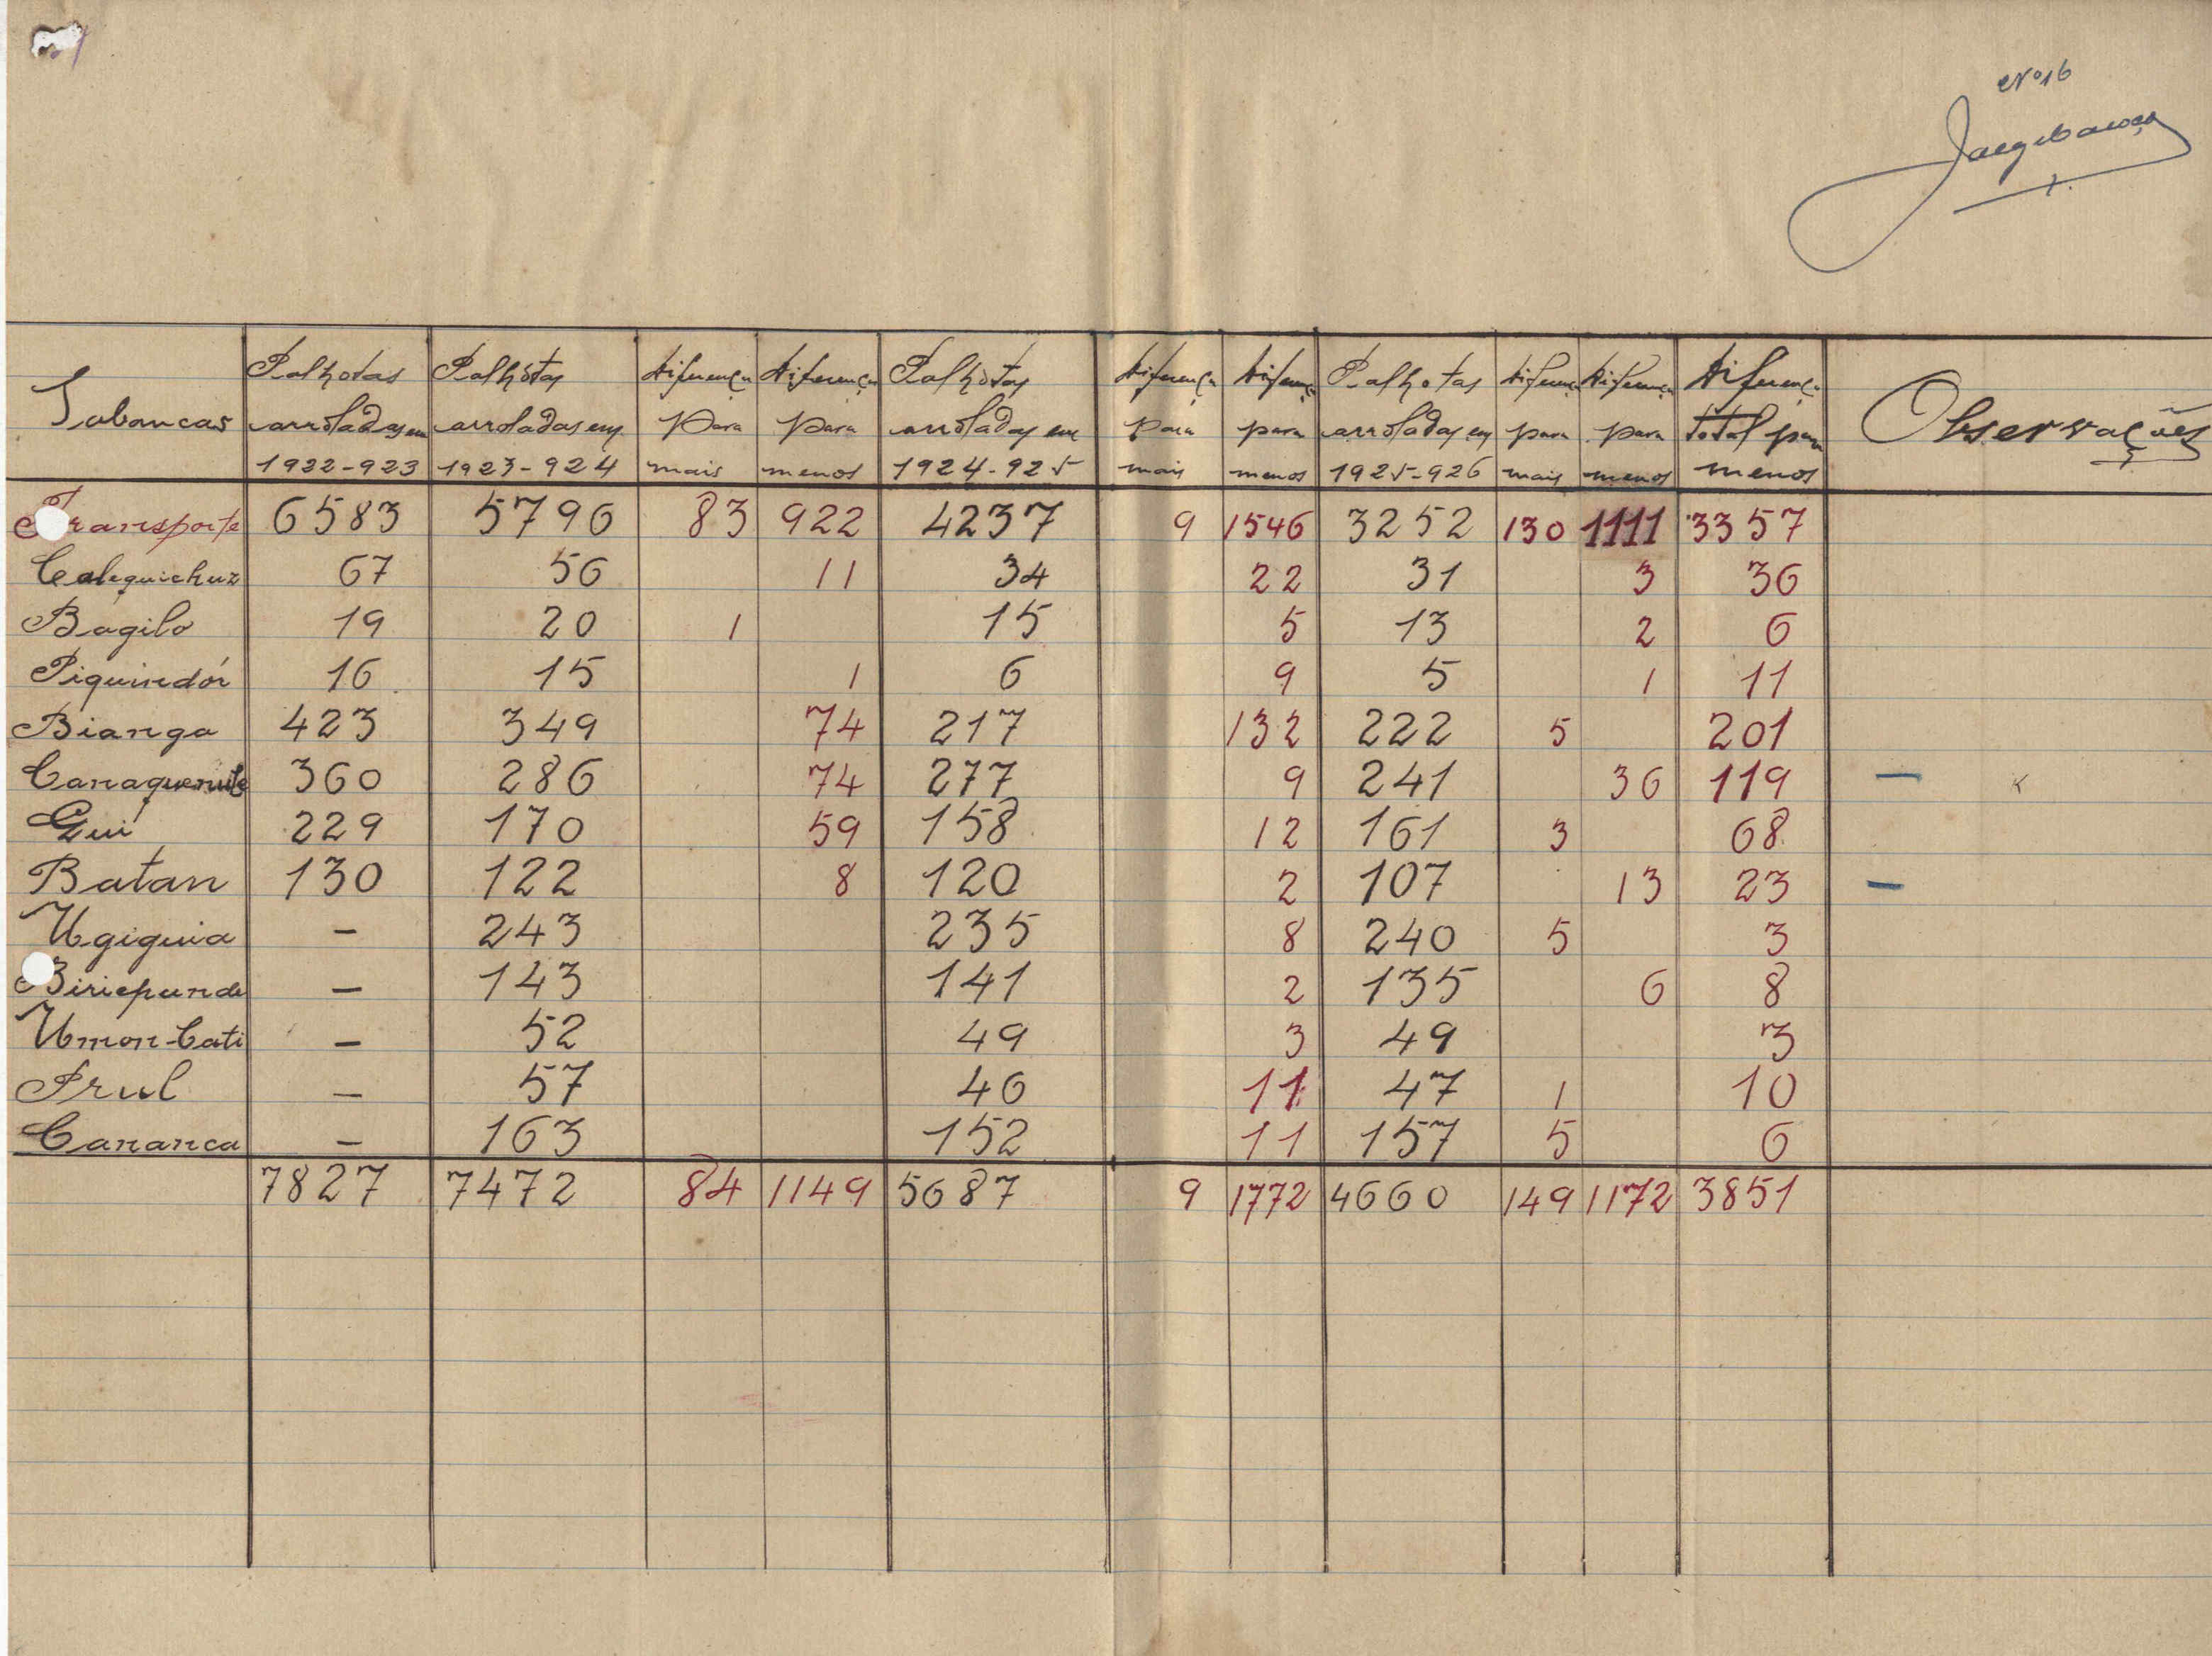 Nº 16
Tabancas | Palhotas arroladas em 1922-923 | Palhótas arroladas em 1923-924 | Diferença para mais | Diferença para menos | Palhótas arroladas em 1924-925 | Diferença para mais | Diferença para menos | Palhotas arroladas em 1925-926 | Diferença para mais | Diferença para menos | Diferença total para menos | Observações
Transporte 6583 5796 83 922 4237 9 1546 3252 130 1111 3357
Calequichuz 67 56 11 34 22 31 3 36
Bagilo 19 20 1 15 5 13 2 6
Piquindór 16 15 1 6 9 5 1 11
Bianga 423 349 74 217 132 222 5 201
360 286 74 277 9 241 36 119 —
Gui 229 170 59 158 12 161 3 68
Batan 130 122 8 120 2 107 13 23 —
Ugiguia — 243 235 8 240 5 3
Biriepunde — 143 141 2 135 6 8
Umon-Cati — 52 49 3 49 3
Prul — 57 46 11 47 1 10
Cananca — 163 152 11 157 5 6
7827 7472 84 1149 5687 9 1772 4660 149 1172 3851